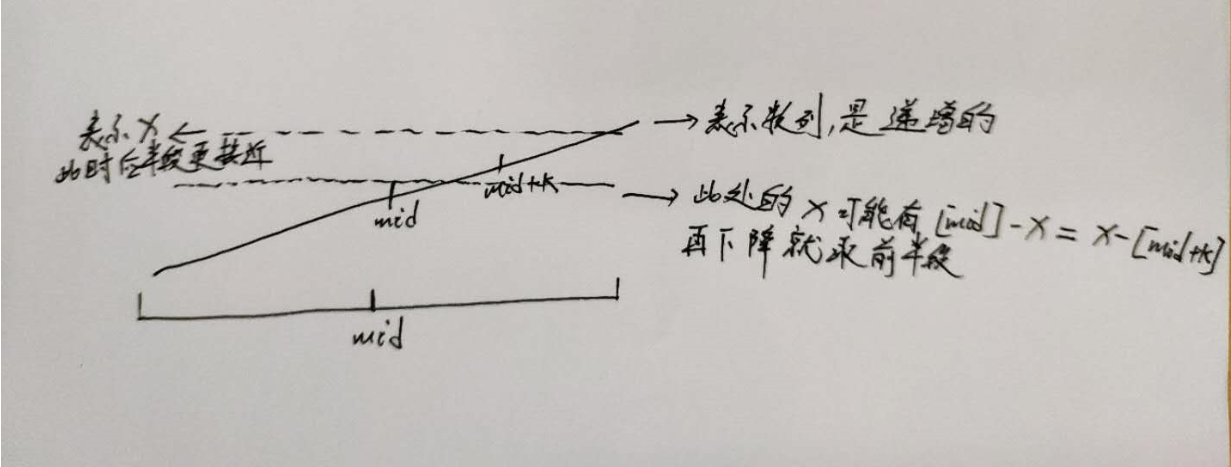 表示 X
此时后半段更接近
表示数列,是递增的
mid
mid+k
此处的 X 可能有 [mid]-X = X-[mid+k]
再下降就求前半段
mid